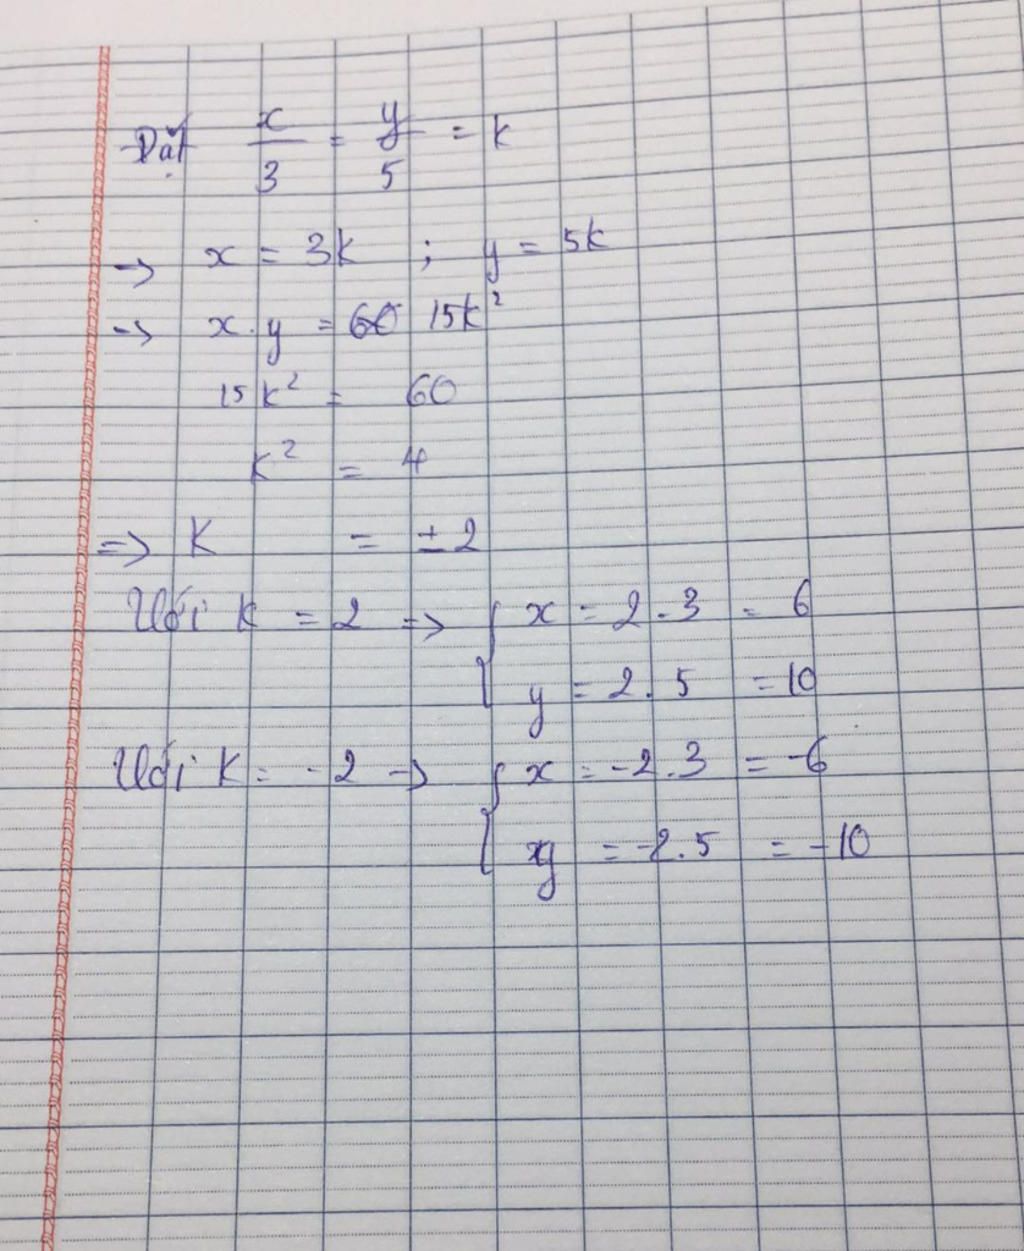 Đặt x/3 = y/5 = k
→ x = 3k ; y = 5k
→ x.y = 60 15k²
15k² = 60
k² = 4
=> K = ±2
Với K = 2 => { x = 2.3 = 6
y = 2.5 = 10
Với K = -2 → { x = -2.3 = -6
xy = -2.5 = -10